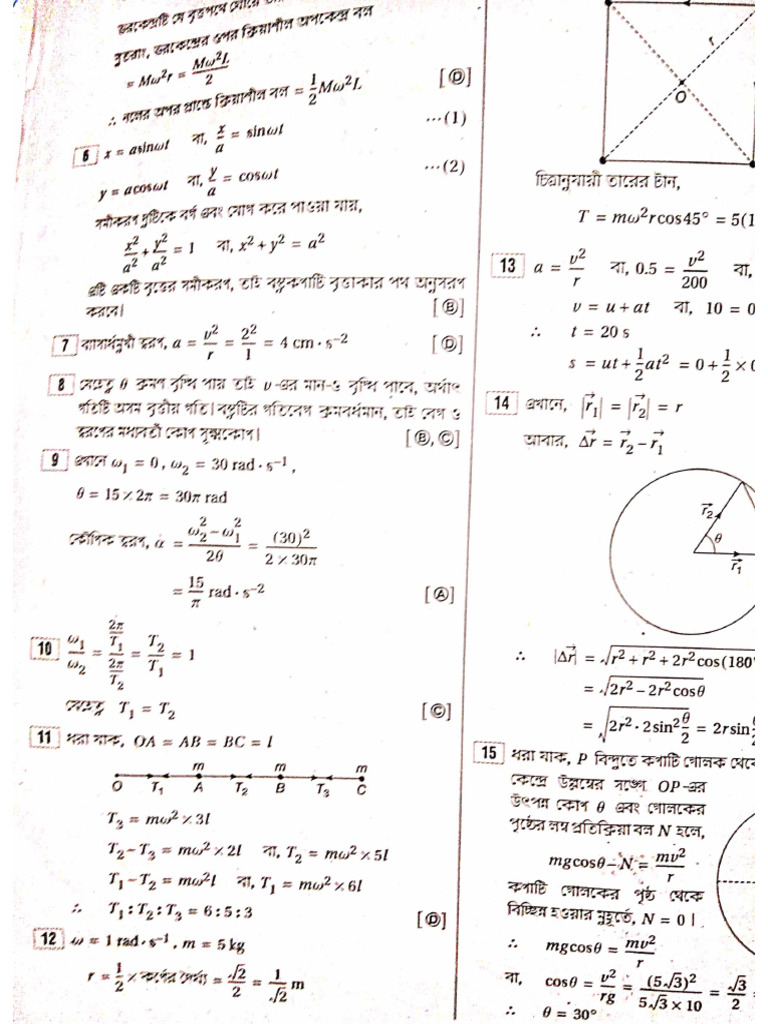 ভরকেন্দ্রটি যে বৃত্তপথে ঘোরে তার
সুতরাং, ভরকেন্দ্রের ওপর ক্রিয়াশীল অপকেন্দ্র বল
= Mω²r = Mω²L/2
∴ নলের অপর প্রান্তে ক্রিয়াশীল বল = 1/2 Mω²L [Ⓓ]
6 x = asinωt বা, x/a = sinωt ...(1)
y = acosωt বা, y/a = cosωt ...(2)
সমীকরণ দুটিকে বর্গ এবং যোগ করে পাওয়া যায়,
x²/a² + y²/a² = 1 বা, x² + y² = a²
এটি একটি বৃত্তের সমীকরণ, তাই বস্তুকণাটি বৃত্তাকার পথ অনুসরণ
করবে। [Ⓑ]
7 ব্যাসার্ধমুখী ত্বরণ, a = v²/r = 2²/1 = 4 cm·s⁻² [Ⓓ]
8 যেহেতু θ ক্রমশ বৃদ্ধি পায় তাই v-এর মান-ও বৃদ্ধি পাবে, অর্থাৎ
গতিটি অসম বৃত্তীয় গতি। বস্তুটির গতিবেগ ক্রমবর্ধমান, তাই বেগ ও
ত্বরণের মধ্যবর্তী কোণ সূক্ষ্মকোণ। [Ⓑ, Ⓒ]
9 এখানে ω₁ = 0, ω₂ = 30 rad·s⁻¹,
θ = 15 × 2π = 30π rad
কৌণিক ত্বরণ, α = (ω₂² − ω₁²)/2θ = (30)²/(2 × 30π)
= 15/π rad·s⁻² [Ⓐ]
10 ω₁/ω₂ = (2π/T₁)/(2π/T₂) = T₂/T₁ = 1
যেহেতু T₁ = T₂ [Ⓒ]
11 ধরা যাক, OA = AB = BC = l
m m m
O T₁ A T₂ B T₃ C
T₃ = mω² × 3l
T₂ − T₃ = mω² × 2l বা, T₂ = mω² × 5l
T₁ − T₂ = mω²l বা, T₁ = mω² × 6l
∴ T₁ : T₂ : T₃ = 6 : 5 : 3 [Ⓓ]
12 ω = 1 rad·s⁻¹, m = 5 kg
r = 1/2 × কর্ণের দৈর্ঘ্য = √2/2 = 1/√2 m
r
O
চিত্রানুযায়ী তারের টান,
T = mω²rcos45° = 5(1
13 a = v²/r বা, 0.5 = v²/200 বা,
v = u + at বা, 10 = 0
∴ t = 20 s
s = ut + 1/2 at² = 0 + 1/2 × 0
14 এখানে, |r⃗₁| = |r⃗₂| = r
আবার, Δ⃗r = r⃗₂ − r⃗₁
r⃗₂
θ
r⃗₁
∴ |Δ⃗r| = √(r² + r² + 2r²cos(180°
= √(2r² − 2r²cosθ)
= √(2r²·2sin²θ/2) = 2rsinθ/2
15 ধরা যাক, P বিন্দুতে কণাটি গোলক থেকে
কেন্দ্রে উল্লম্বের সঙ্গে OP-এর
উৎপন্ন কোণ θ এবং গোলকের
পৃষ্ঠের লম্ব প্রতিক্রিয়া বল N হলে,
mgcosθ − N = mv²/r
কণাটি গোলকের পৃষ্ঠ থেকে
বিচ্ছিন্ন হওয়ার মুহূর্তে, N = 0।
∴ mgcosθ = mv²/r
বা, cosθ = v²/rg = (5√3)²/(5√3 × 10) = √3/2
∴ θ = 30°